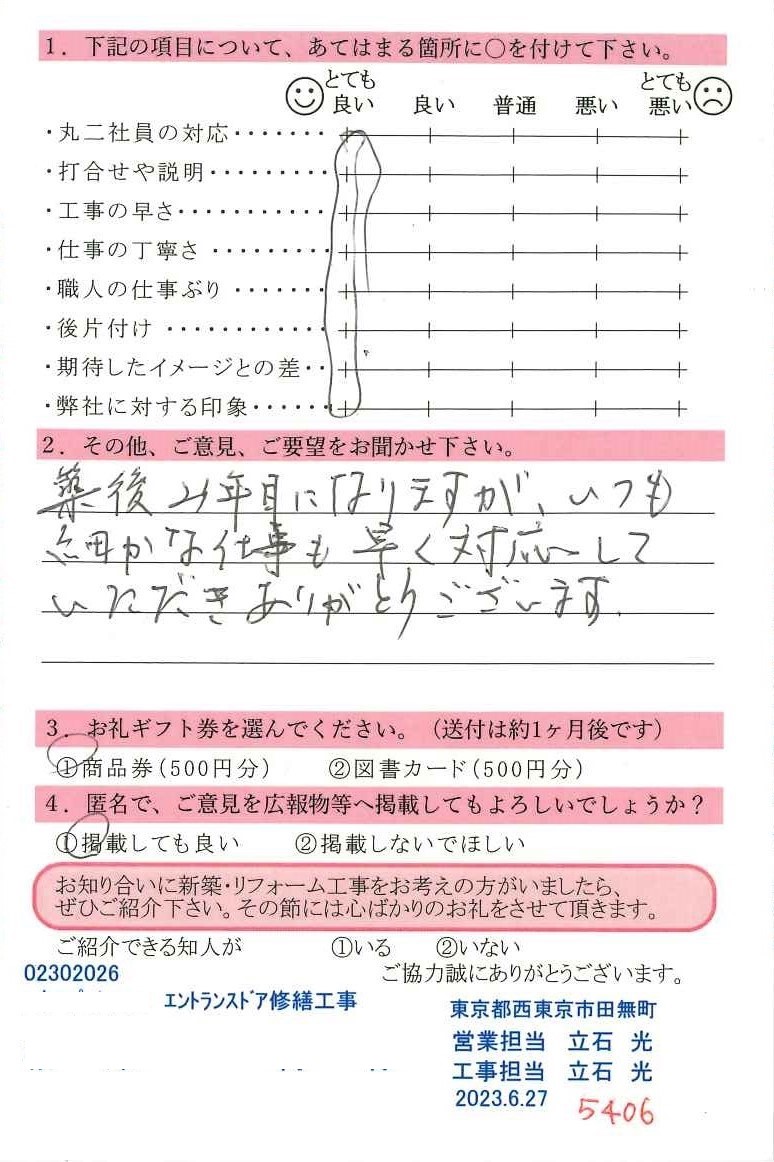 1．下記の項目について、あてはまる箇所に○を付けて下さい。
とても良い 良い 普通 悪い とても悪い
・丸二社員の対応・・・・・・・
・打合せや説明・・・・・・・・・
・工事の早さ・・・・・・・・・・・
・仕事の丁寧さ・・・・・・・・・
・職人の仕事ぶり・・・・・・・
・後片付け・・・・・・・・・・・・
・期待したイメージとの差・・
・弊社に対する印象・・・・・・
2．その他、ご意見、ご要望をお聞かせ下さい。
築後21年目になりますが、いつも
細かな仕事も早く対応して
いただきありがとうございます.
3．お礼ギフト券を選んでください。（送付は約1ヶ月後です）
①商品券（500円分） ②図書カード（500円分）
4．匿名で、ご意見を広報物等へ掲載してもよろしいでしょうか？
①掲載しても良い ②掲載しないでほしい
お知り合いに新築・リフォーム工事をお考えの方がいましたら、
ぜひご紹介下さい。その節には心ばかりのお礼をさせて頂きます。
ご紹介できる知人が ①いる ②いない
02302026 ご協力誠にありがとうございます。
エントランスドア修繕工事
東京都西東京市田無町
営業担当 立石 光
工事担当 立石 光
2023.6.27 5406